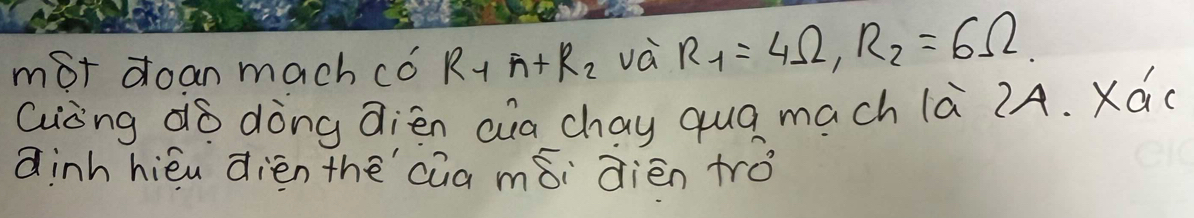 một đoạn mạch có R1 nt R2 và R1 = 4Ω, R2 = 6Ω.
Cường độ dòng điện của chạy qua mạch là 2A. Xác
định hiệu điện thế của mỗi điện trở